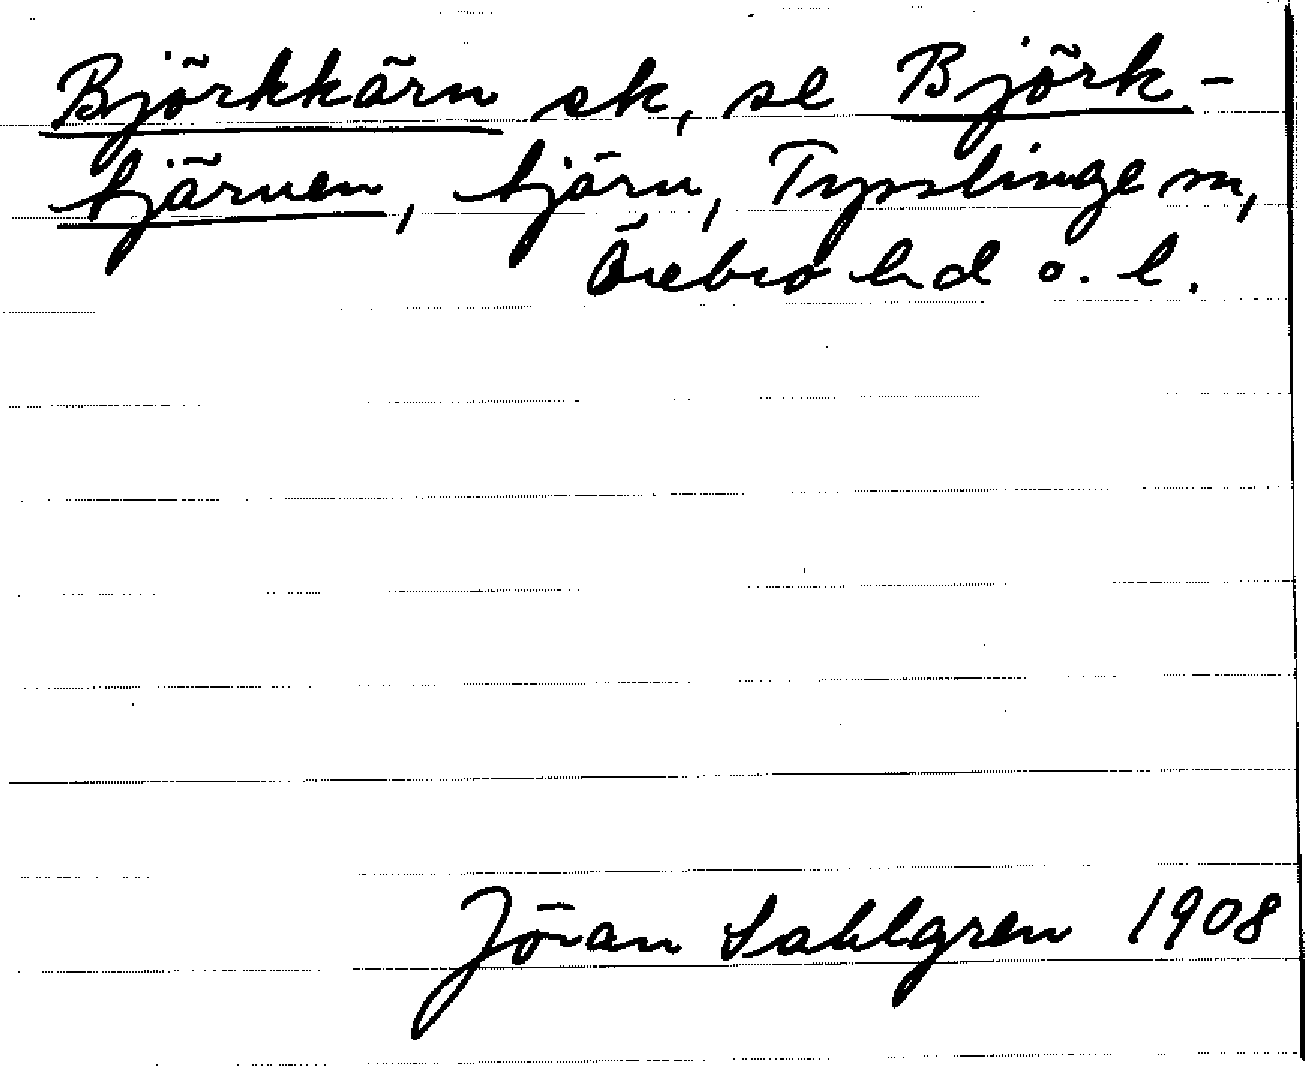 Björkkärn sk, se Björk-
tjärnen, tjärn, Tysslinge sn,
Örebro hd o. l.
Jöran Sahlgren 1908